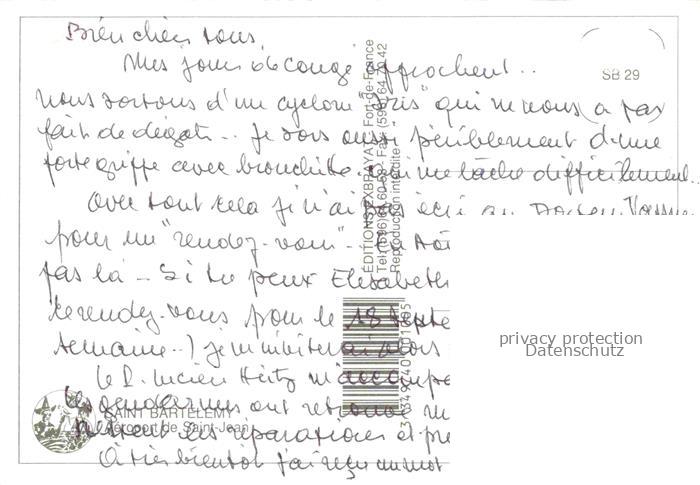 Bien chers tous,
Mes jours de congé approchent...
SB 29
nous sortons d'un cyclone "Iris" qui ne nous a pas
fait de dégâts... Je sors aussi péniblement d'une
forte grippe avec bronchite qui me lâche difficilement...
Avec tout cela je n'ai pas écrit au
pour un "rendez-vous"..
pas là - Si tu peux Elisabeth
le rendez-vous pour le 18 Septe
semaine..) je m'inviterai alors
le P. Lucien Hertz m'accompa
Les gendarmes ont retrouvé
les réparations
A très bientôt j'ai reçu un mot
ÉDITIONS EXBRAYAT - Fort-de-France
Reproduction interdite
SAINT BARTELEMY
Aéroport de Saint-Jean
privacy protection
Datenschutz